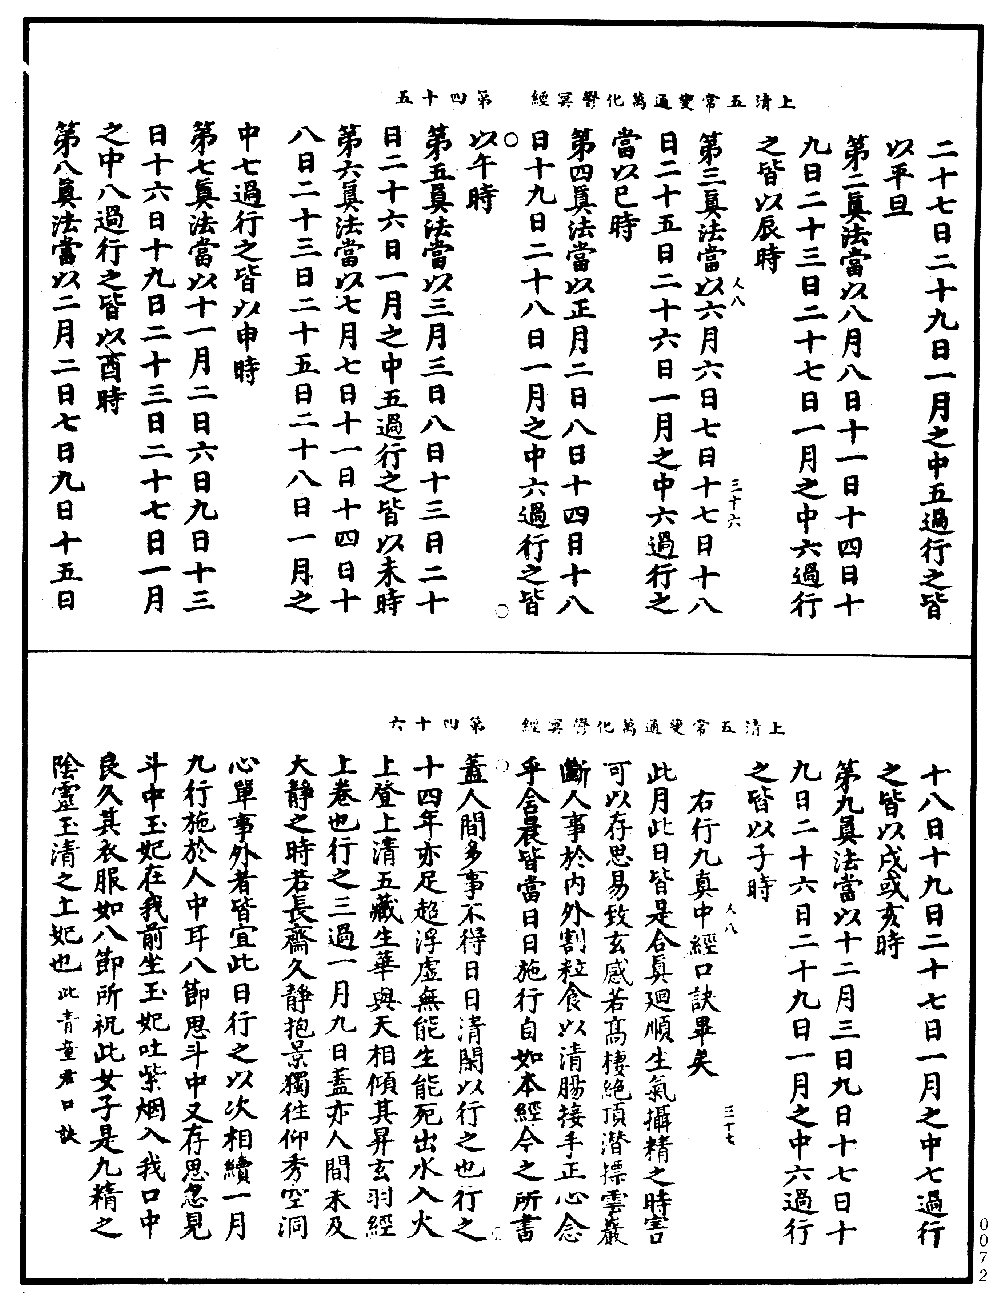 上清五常變通萬化鬱冥經　第四十五
二十七日二十九日一月之中五過行之皆
以平旦
第二真法當以八月八日十一日十四日十
九日二十三日二十七日一月之中六過行
之皆以辰時
人八
三十六
第三真法當以六月六日七日十七日十八
日二十五日二十六日一月之中六過行之
當以巳時
第四真法當以正月二日八日十四日十八
日十九日二十八日一月之中六過行之皆
以午時
第五真法當以三月三日八日十三日二十
日二十六日一月之中五過行之皆以未時
第六真法當以七月七日十一日十四日十
八日二十三日二十五日二十八日一月之
中七過行之皆以申時
第七真法當以十一月二日六日九日十三
日十六日十九日二十三日二十七日一月
之中八過行之皆以酉時
第八真法當以二月二日七日九日十五日
上清五常變通萬化鬱冥經　第四十六
十八日十九日二十七日一月之中七過行
之皆以戌或亥時
第九真法當以十二月三日九日十七日十
九日二十六日二十九日一月之中六過行
之皆以子時
人八
三十七
右行九真中經口訣畢矣
此月此日皆是合真迴順生氣攝精之時害
可以存思易致玄感若高棲絕頂潛摽雲巖
斷人事於內外割粒食以清腸接手正心念
乎含晨皆當日日施行自如本經今之所書
蓋人間多事不得日日清閑以行之也行之
十四年亦足超浮虛無能生能死出水入火
上登上清五藏生華與天相傾其昇玄羽經
上卷也行之三過一月九日蓋亦人間未及
大靜之時若長齋久靜抱景獨往仰秀空洞
心單事外者皆宜此日行之以次相續一月
九行施於人中耳八節思斗中又存思忽見
斗中玉妃在我前坐玉妃吐紫烟入我口中
良久其衣服如八節所祝此女子是九精之
陰靈玉清之上妃也此青童君口訣
0072